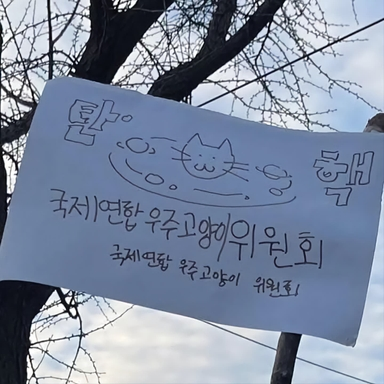 탄 핵
국제연합 우주고양이위원회
국제연합 우주고양이 위원회